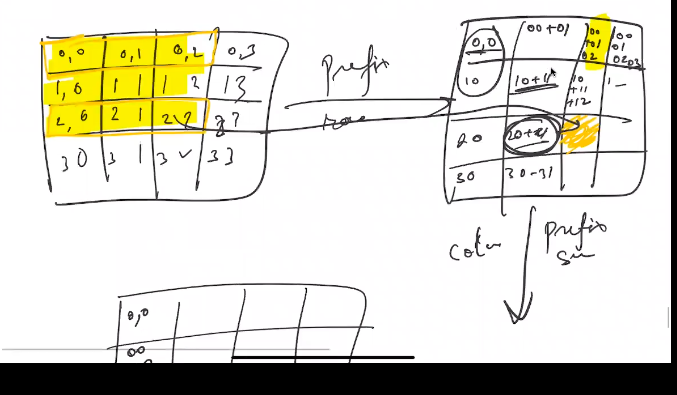 0,0 0,1 0,2 0,3
1,0 1 1 1 2 13
2,0 2 1 2 2
30 3 1 3 33
Prefix
row
0,0 00+01 00 +01 02 00 01 02 03
10 10+11 10 +11 +12 1-
20 20+21
30 30-31
prefix
0,0
00